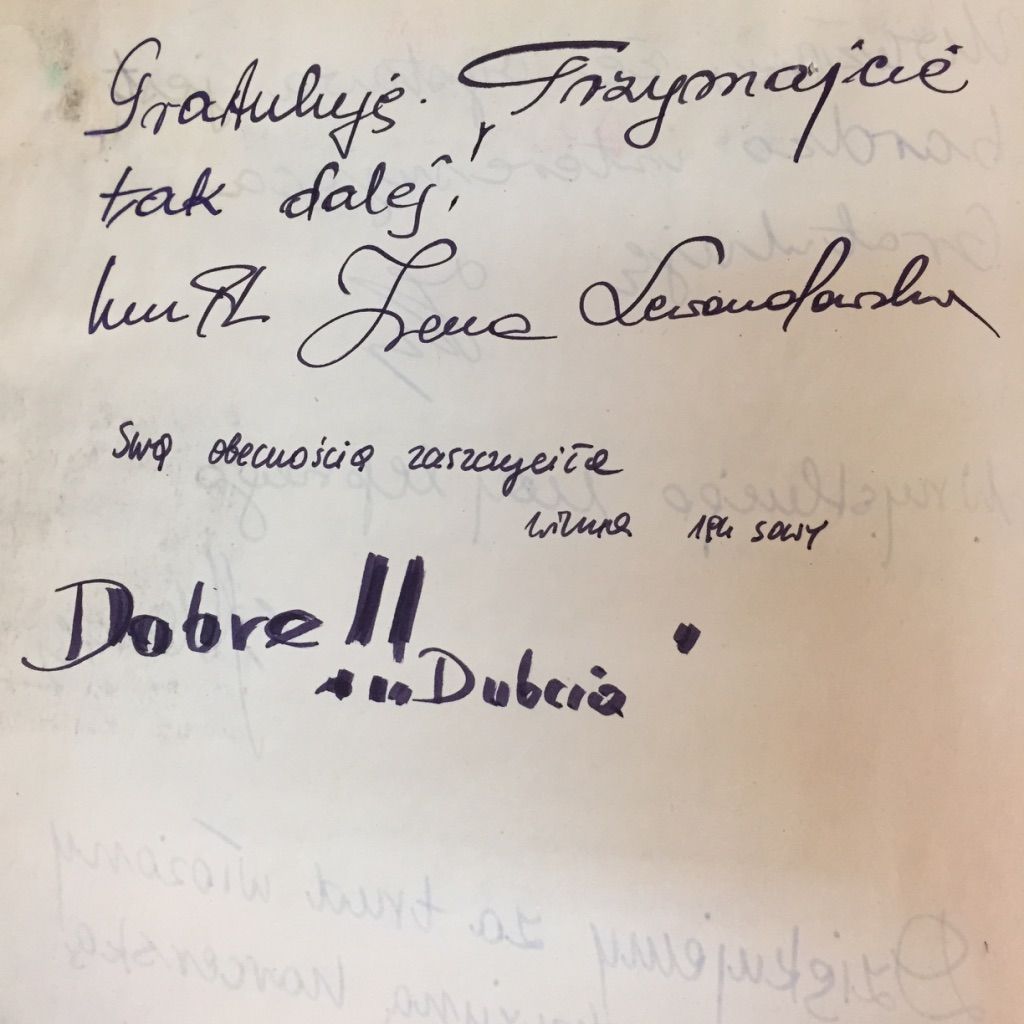 Gratuluję. Trzymajcie
tak dalej!
hm Irena Lewandowska
Swą obecnością zaszczyciła
sowy
Dobre!!
...Dubcia